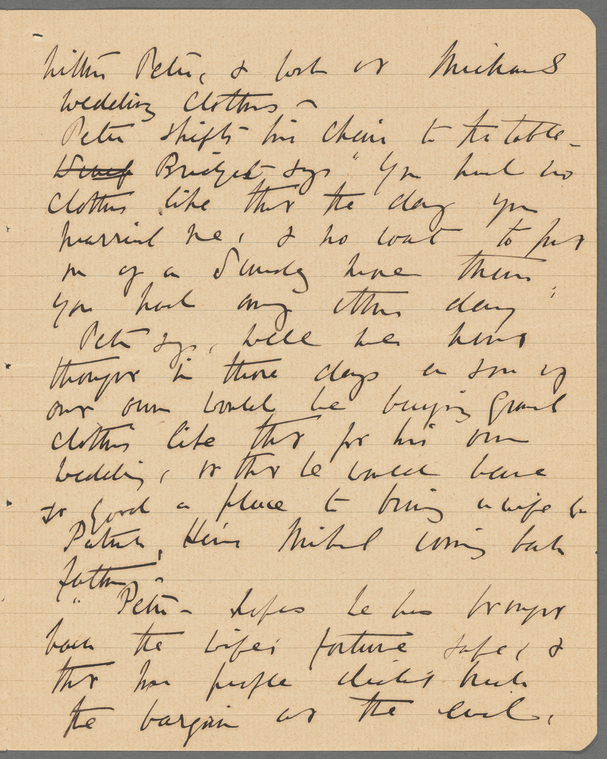 hither Peter, & look at Michael's
wedding clothes —
Peter shifts his chair to the table —
Bridget says "You had no
clothes like that the day you
married me, & no coat to put
on of a Sunday more than
you had any other day"
Peter says, well we never
thought in those days a son of
our own would be buying grand
clothes like that for his own
wedding, or that he would have
so good a place to bring a wife to
Patrick, Here's Michael coming back
father —
" Peter — I hope he has brought
back the wife's fortune safe, &
that her people didn't break
the bargain at the end,